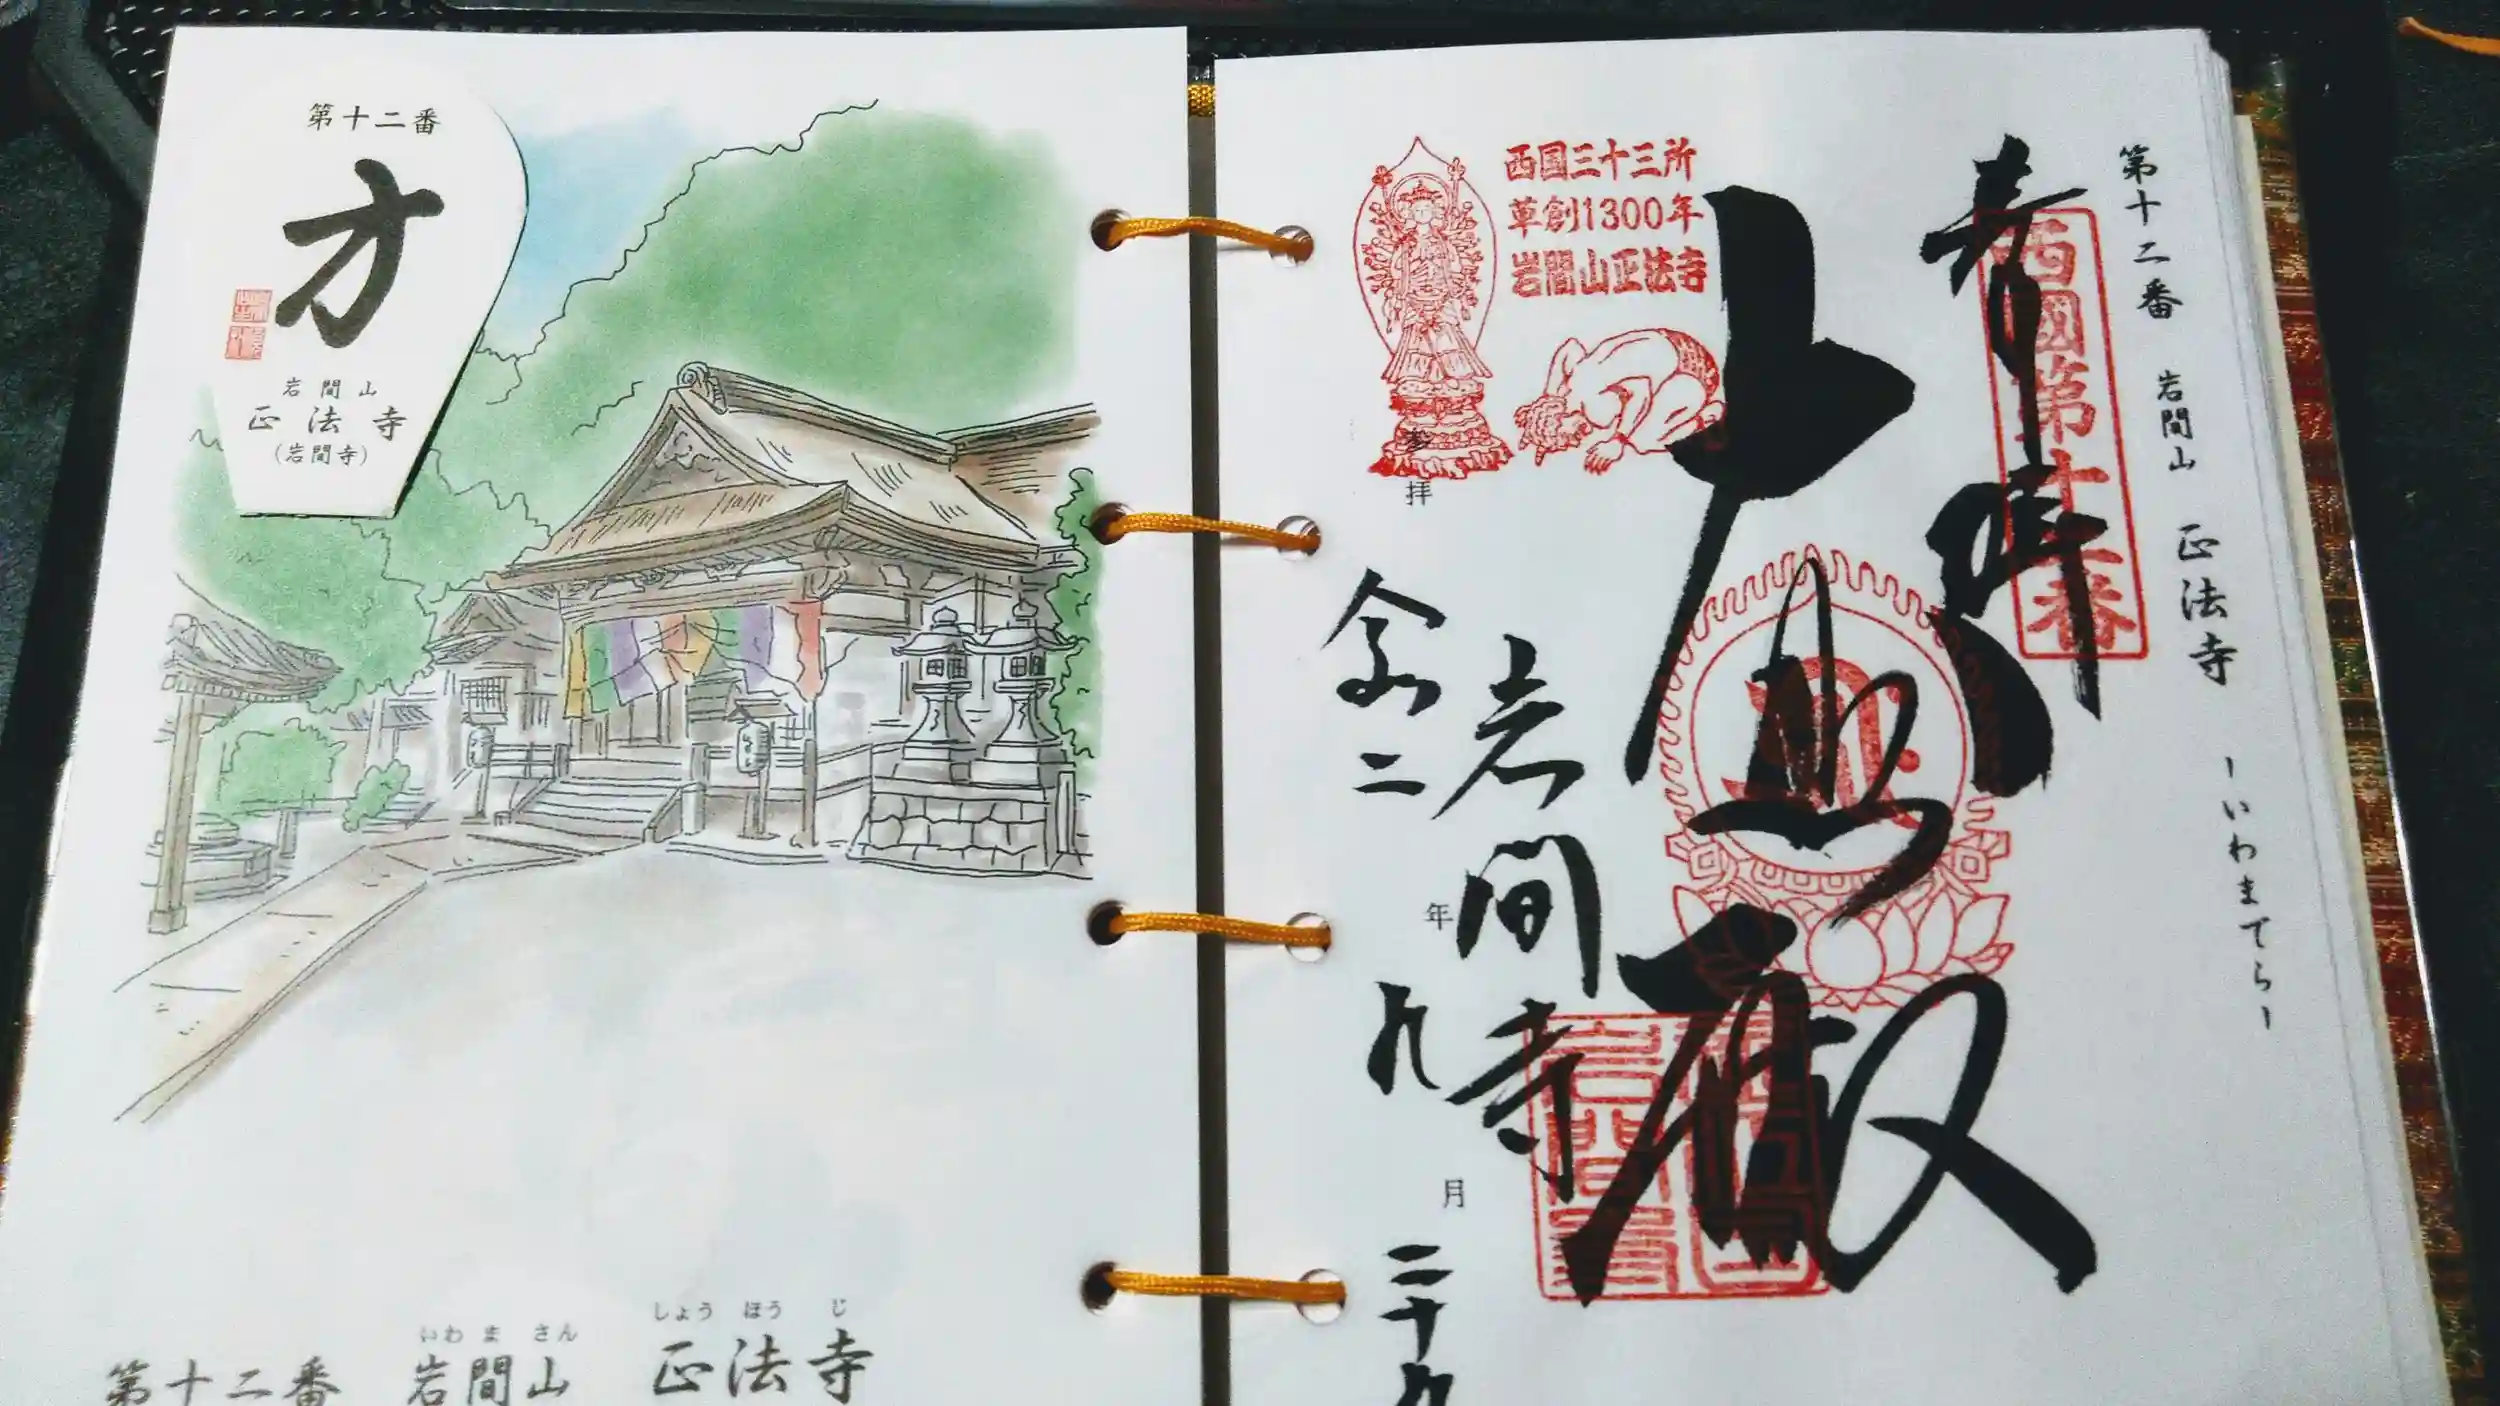 第十二番
方
岩間山
正法寺
(岩間寺)
第十二番 岩間山 正法寺
いわ ま さん しょう ほう じ
第十二番 岩間山 正法寺 -いわまでら-
西国三十三所
草創1300年
岩間山正法寺
西國第十二番
奉拝
大悲殿
岩間寺
参拝
令和二年九月二十九